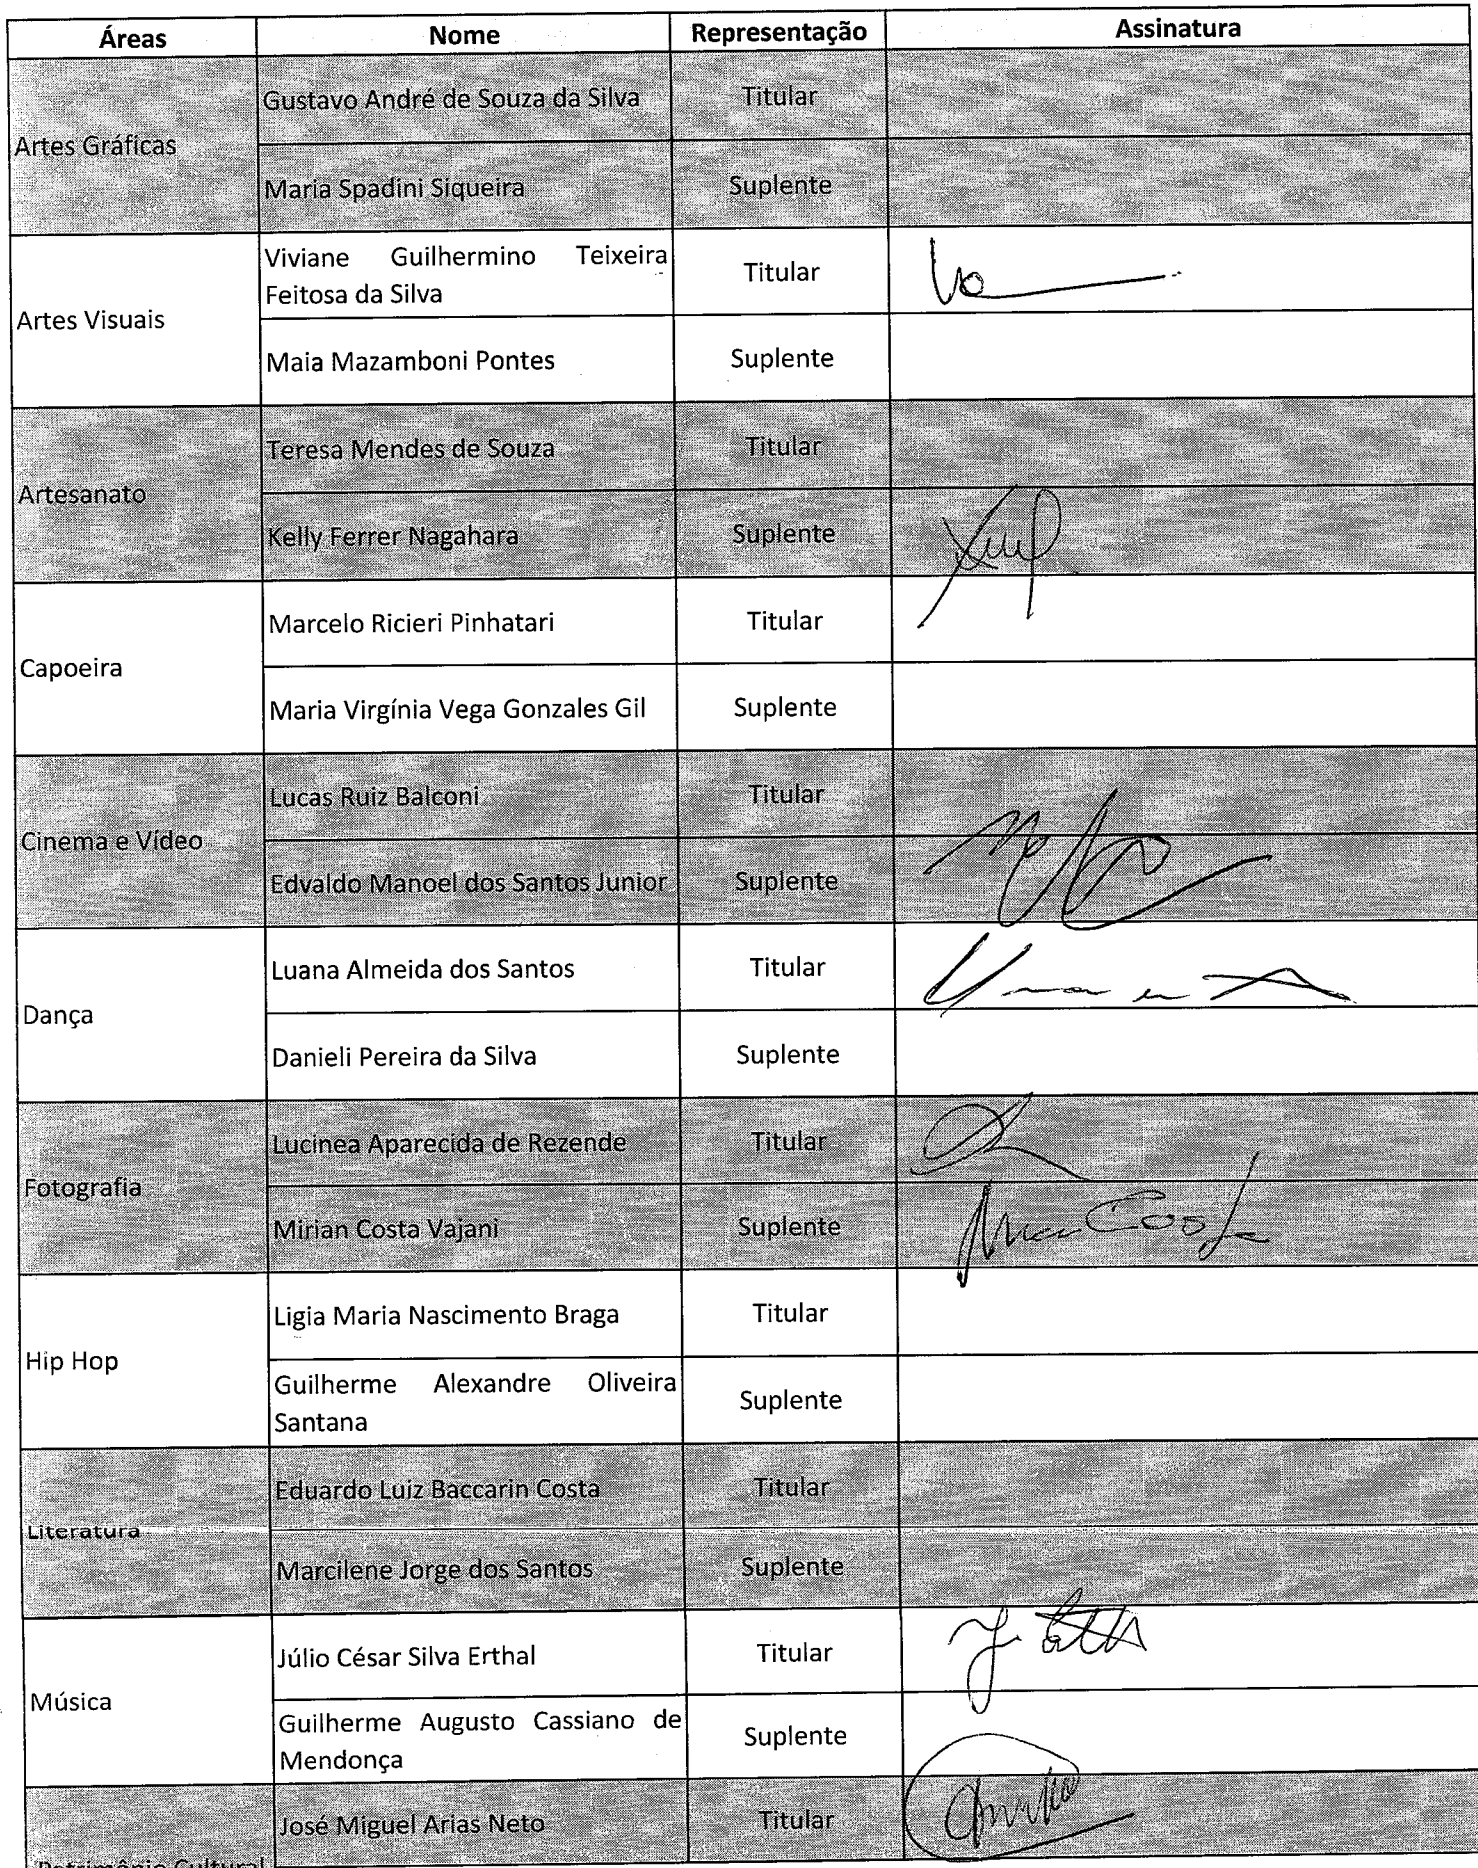 Áreas Nome Representação Assinatura
Artes Gráficas
Gustavo André de Souza da Silva Titular
Maria Spadini Siqueira Suplente
Artes Visuais
Viviane Guilhermino Teixeira
Feitosa da Silva
Titular
Maia Mazamboni Pontes Suplente
Artesanato
Teresa Mendes de Souza Titular
Kelly Ferrer Nagahara Suplente
Capoeira
Marcelo Ricieri Pinhatari Titular
Maria Virgínia Vega Gonzales Gil Suplente
Cinema e Vídeo
Lucas Ruiz Balconi Titular
Edvaldo Manoel dos Santos Junior Suplente
Dança
Luana Almeida dos Santos Titular
Danieli Pereira da Silva Suplente
Fotografia
Lucinea Aparecida de Rezende Titular
Mirian Costa Vajani Suplente
Hip Hop
Ligia Maria Nascimento Braga Titular
Guilherme Alexandre Oliveira
Santana
Suplente
Literatura
Eduardo Luiz Baccarin Costa Titular
Marcilene Jorge dos Santos Suplente
Música
Júlio César Silva Erthal Titular
Guilherme Augusto Cassiano de
Mendonça
Suplente
José Miguel Arias Neto Titular
Patrimônio Cultural